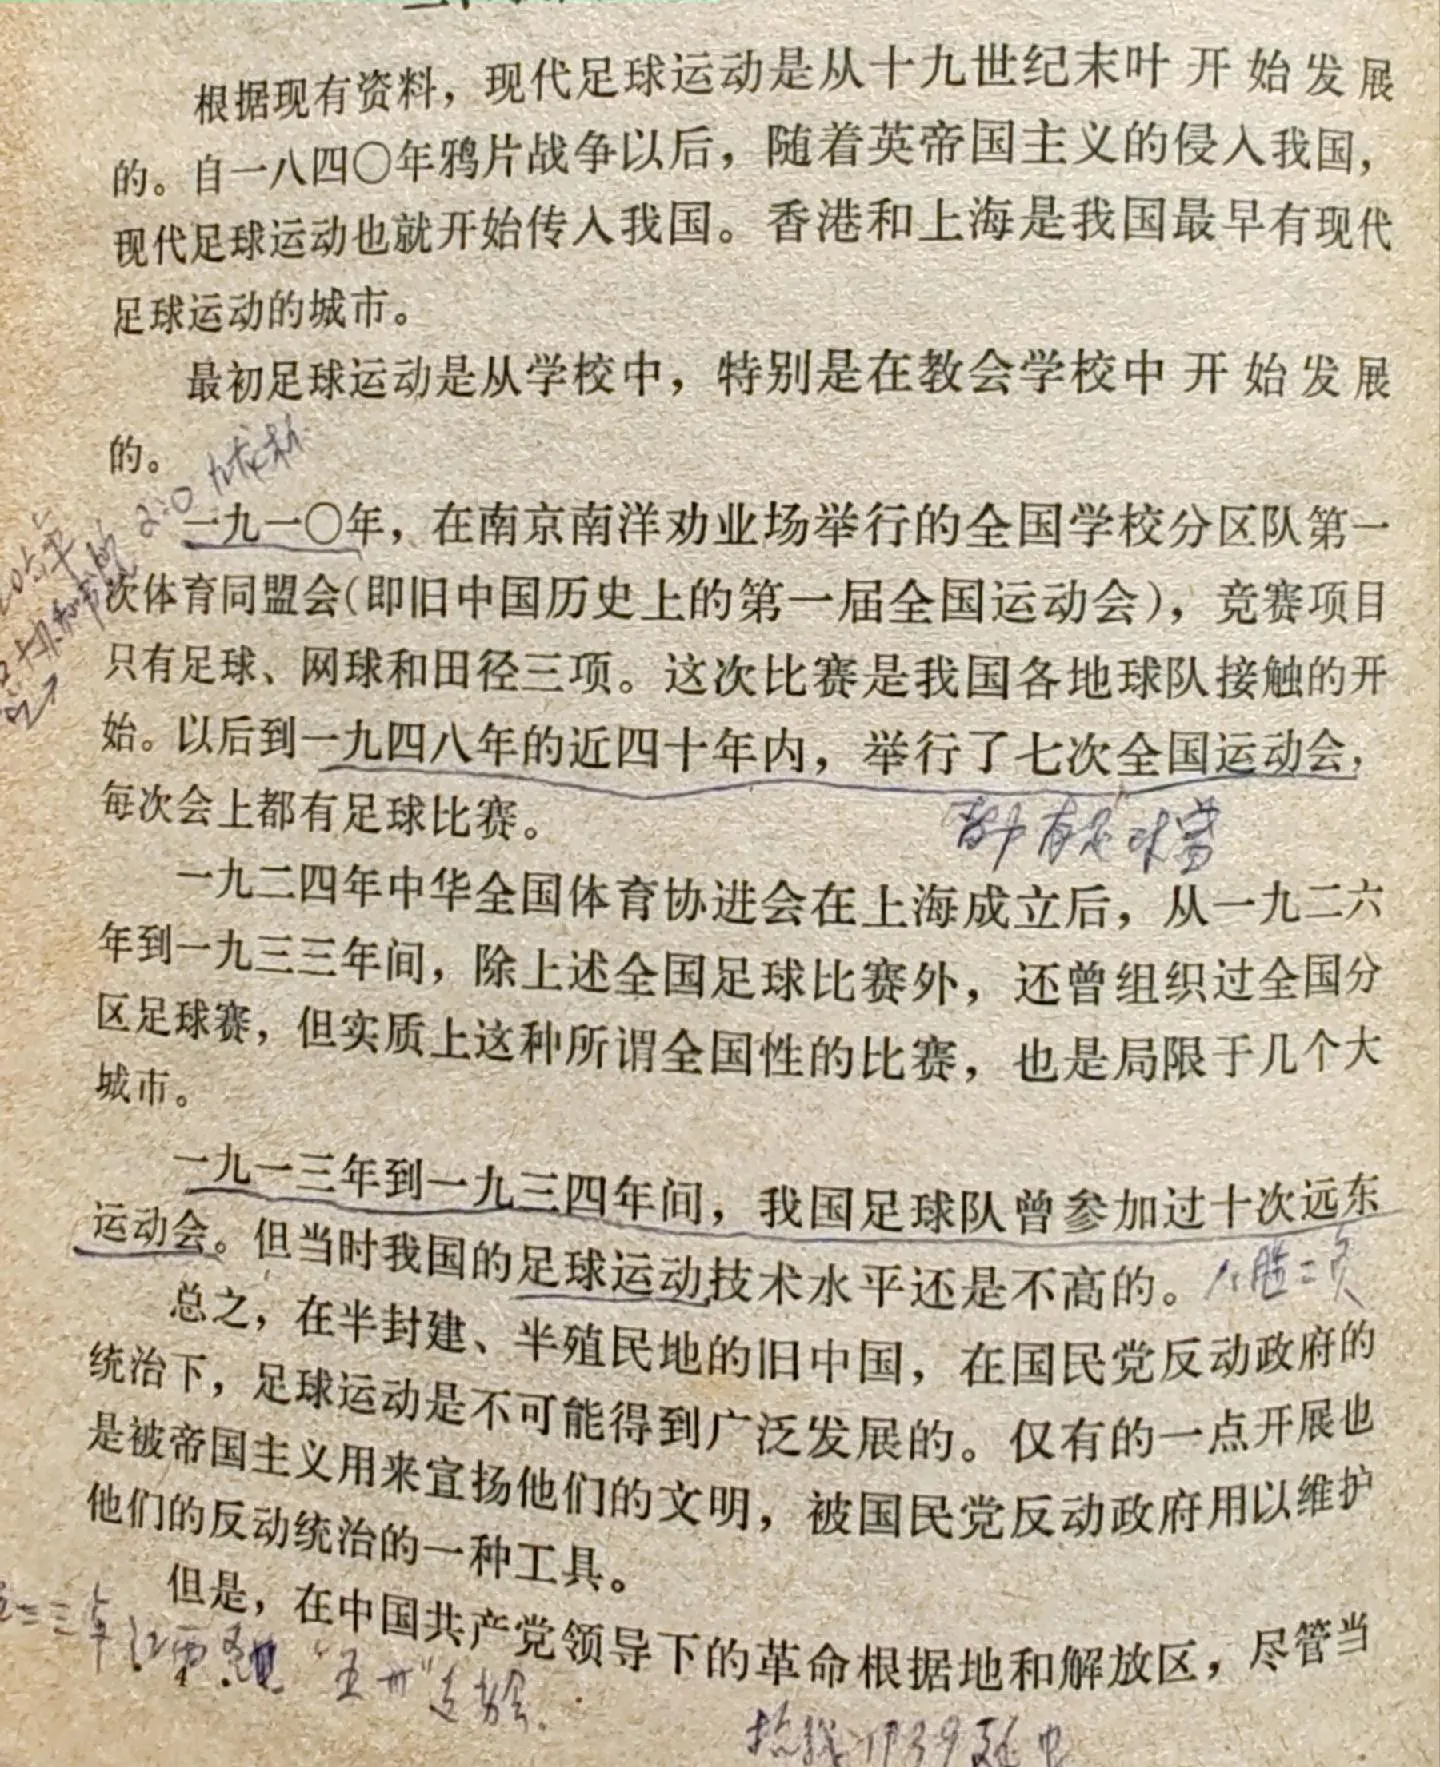 根据现有资料，现代足球运动是从十九世纪末叶开始发展
的。自一八四〇年鸦片战争以后，随着英帝国主义的侵入我国，
现代足球运动也就开始传入我国。香港和上海是我国最早有现代
足球运动的城市。
最初足球运动是从学校中，特别是在教会学校中开始发展
的。
一九一〇年，在南京南洋劝业场举行的全国学校分区队第一
次体育同盟会(即旧中国历史上的第一届全国运动会)，竞赛项目
只有足球、网球和田径三项。这次比赛是我国各地球队接触的开
始。以后到一九四八年的近四十年内，举行了七次全国运动会，
每次会上都有足球比赛。
都有足球赛
一九二四年中华全国体育协进会在上海成立后，从一九二六
年到一九三三年间，除上述全国足球比赛外，还曾组织过全国分
区足球赛，但实质上这种所谓全国性的比赛，也是局限于几个大
城市。
一九一三年到一九三四年间，我国足球队曾参加过十次远东
运动会。但当时我国的足球运动技术水平还是不高的。
总之，在半封建、半殖民地的旧中国，在国民党反动政府的
统治下，足球运动是不可能得到广泛发展的。仅有的一点开展也
是被帝国主义用来宣扬他们的文明，被国民党反动政府用以维护
他们的反动统治的一种工具。
但是，在中国共产党领导下的革命根据地和解放区，尽管当
三三年江西 "五卅"运动会.
1939延